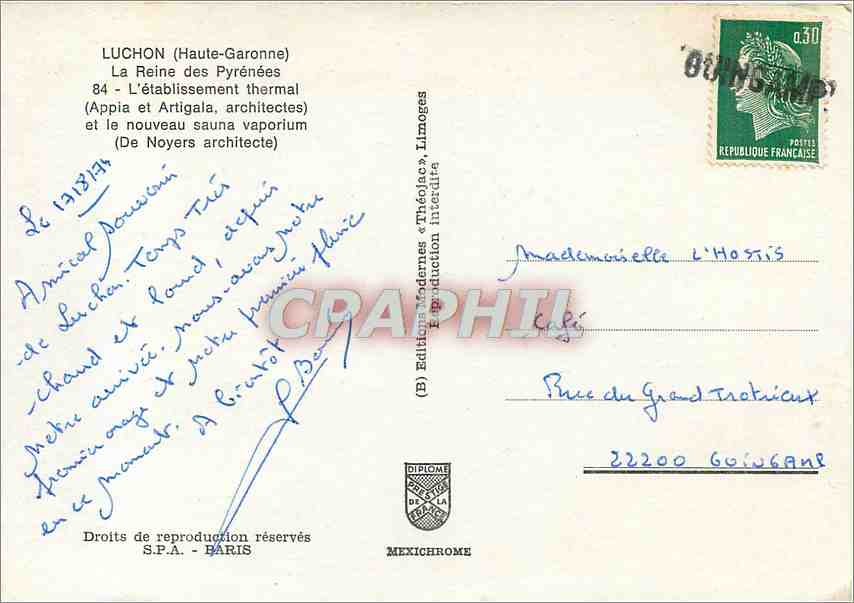 LUCHON (Haute-Garonne)
La Reine des Pyrénées
84 - L'établissement thermal
(Appia et Artigala, architectes)
et le nouveau sauna vaporium
(De Noyers architecte)
Le 17/8/74
Amical souvenir
de Luchon. Temps très
chaud et lourd, depuis
notre arrivée. Nous avons notre
premier orage et notre première pluie
en ce moment. A bientôt
Droits de reproduction réservés
S.P.A. - PARIS
(B) Editions Modernes «Théojac», Limoges
Reproduction interdite
CPARPHIL
DIPLOME
PRESTIGE
DE LA
FRANCE
MEXICHROME
GUINGAMP
0,30
POSTES
REPUBLIQUE FRANÇAISE
Mademoiselle L'HOSTIS
Café
Rue du Grand Trotrieux
22200 GUINGAMP